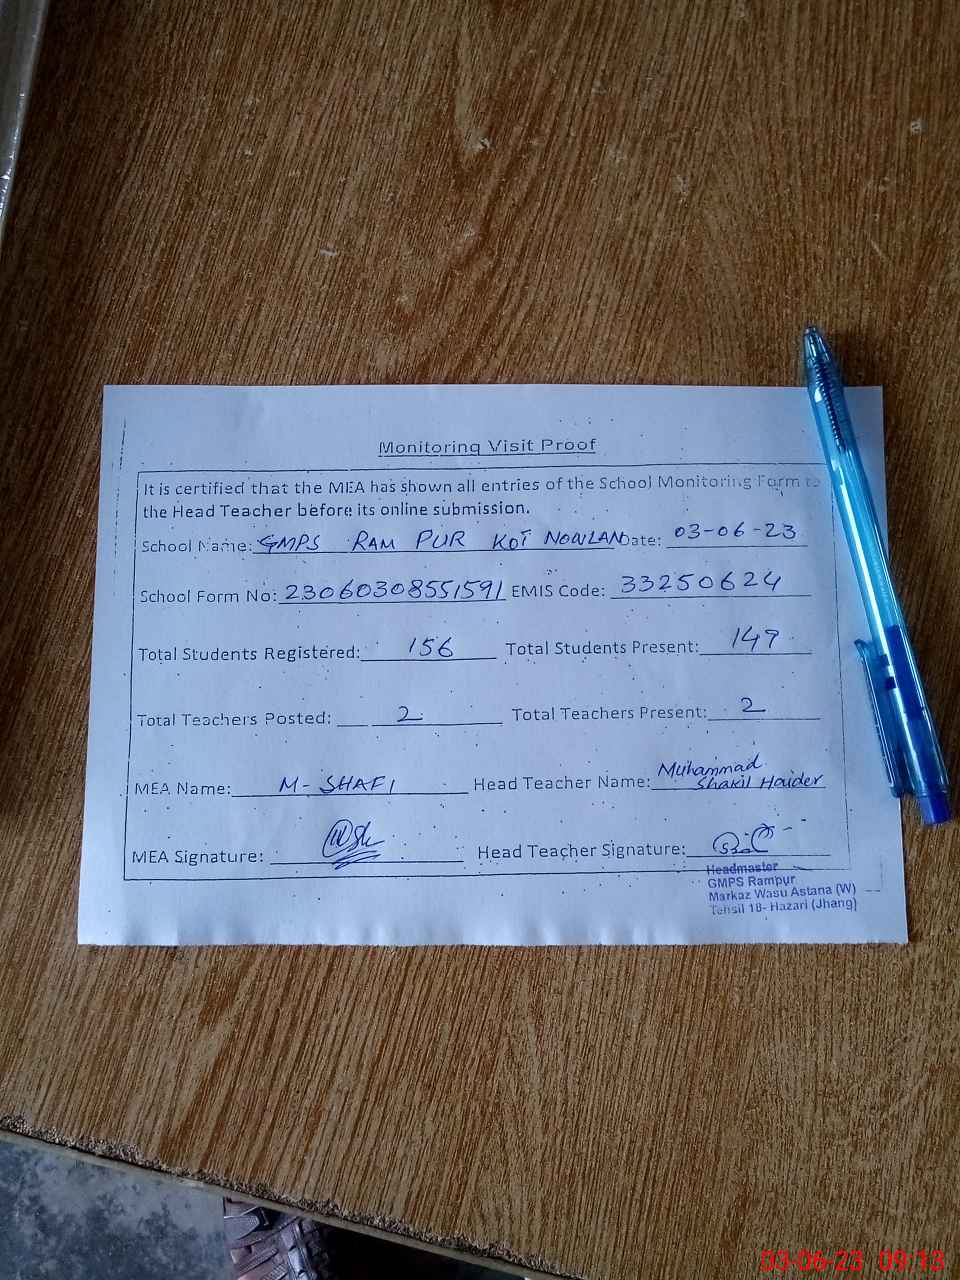 Monitoring Visit Proof
It is certified that the MEA has shown all entries of the School Monitoring Form to
the Head Teacher before its online submission.
School Name: GMPS RAM PUR KOT NOWLAN Date: 03-06-23
School Form No: 23060308551591 EMIS Code: 33250624
Total Students Registered: 156 Total Students Present: 149
Total Teachers Posted: 2 Total Teachers Present: 2
MEA Name: M-SHAFI Head Teacher Name: Muhammad
Shakil Haider
MEA Signature: Head Teacher Signature:
Headmaster
GMPS Rampur
Markaz Wasu Astana (W)
Tehsil 18- Hazari (Jhang)
03-06-23 09:13